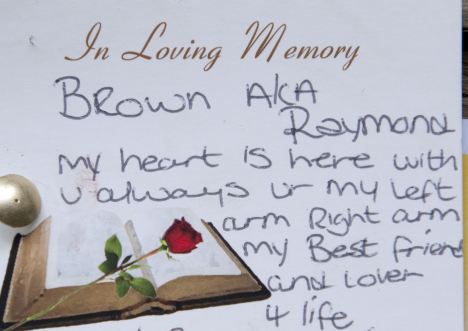 In Loving Memory
Brown AKA
Raymond
my heart is here with
u always ur my left
arm Right arm
my Best friend
and lover
4 life